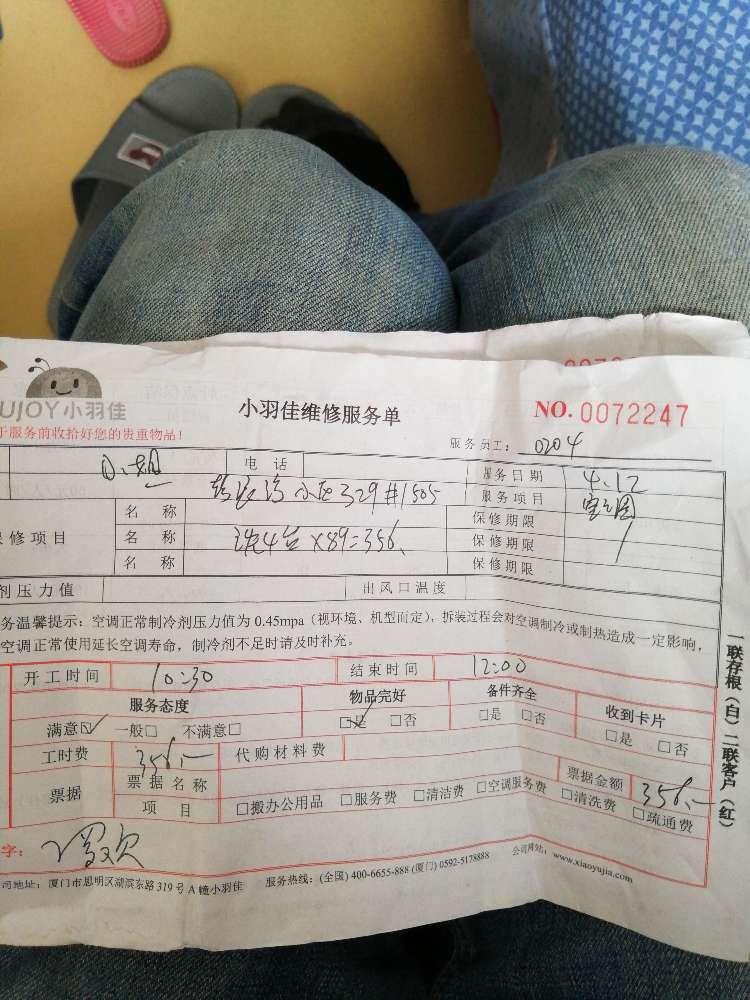 UJOY小羽佳
小羽佳维修服务单
NO. 0072247
于服务前收拾好您的贵重物品！
服务员工： 0204
电 话 服务日期 4.12
小区329#1505 服务项目
名 称 保修期限
修项目 名 称 洗4台×89=356. 保修期限
名 称 保修期限
剂压力值 出风口温度
务温馨提示：空调正常制冷剂压力值为 0.45mpa（视环境、机型而定），拆装过程会对空调制冷或制热造成一定影响，
空调正常使用延长空调寿命，制冷剂不足时请及时补充。
开工时间 10:30 结束时间 12:00
服务态度 物品完好 备件齐全 收到卡片
满意☑ 一般□ 不满意□ ☑是 □否 □是 □否 □是 □否
工时费 356.- 代购材料费
票据 票据名称 票据金额 356.-
项 目 □搬办公用品 □服务费 □清洁费 □空调服务费 □清洗费 □疏通费
字：
司地址：厦门市思明区湖滨东路 319 号 A 幢小羽佳 服务热线：(全国) 400-6655-888 (厦门) 0592-5178888 公司网站：www.xiaoyujia.com
一联存根（白）二联客户（红）